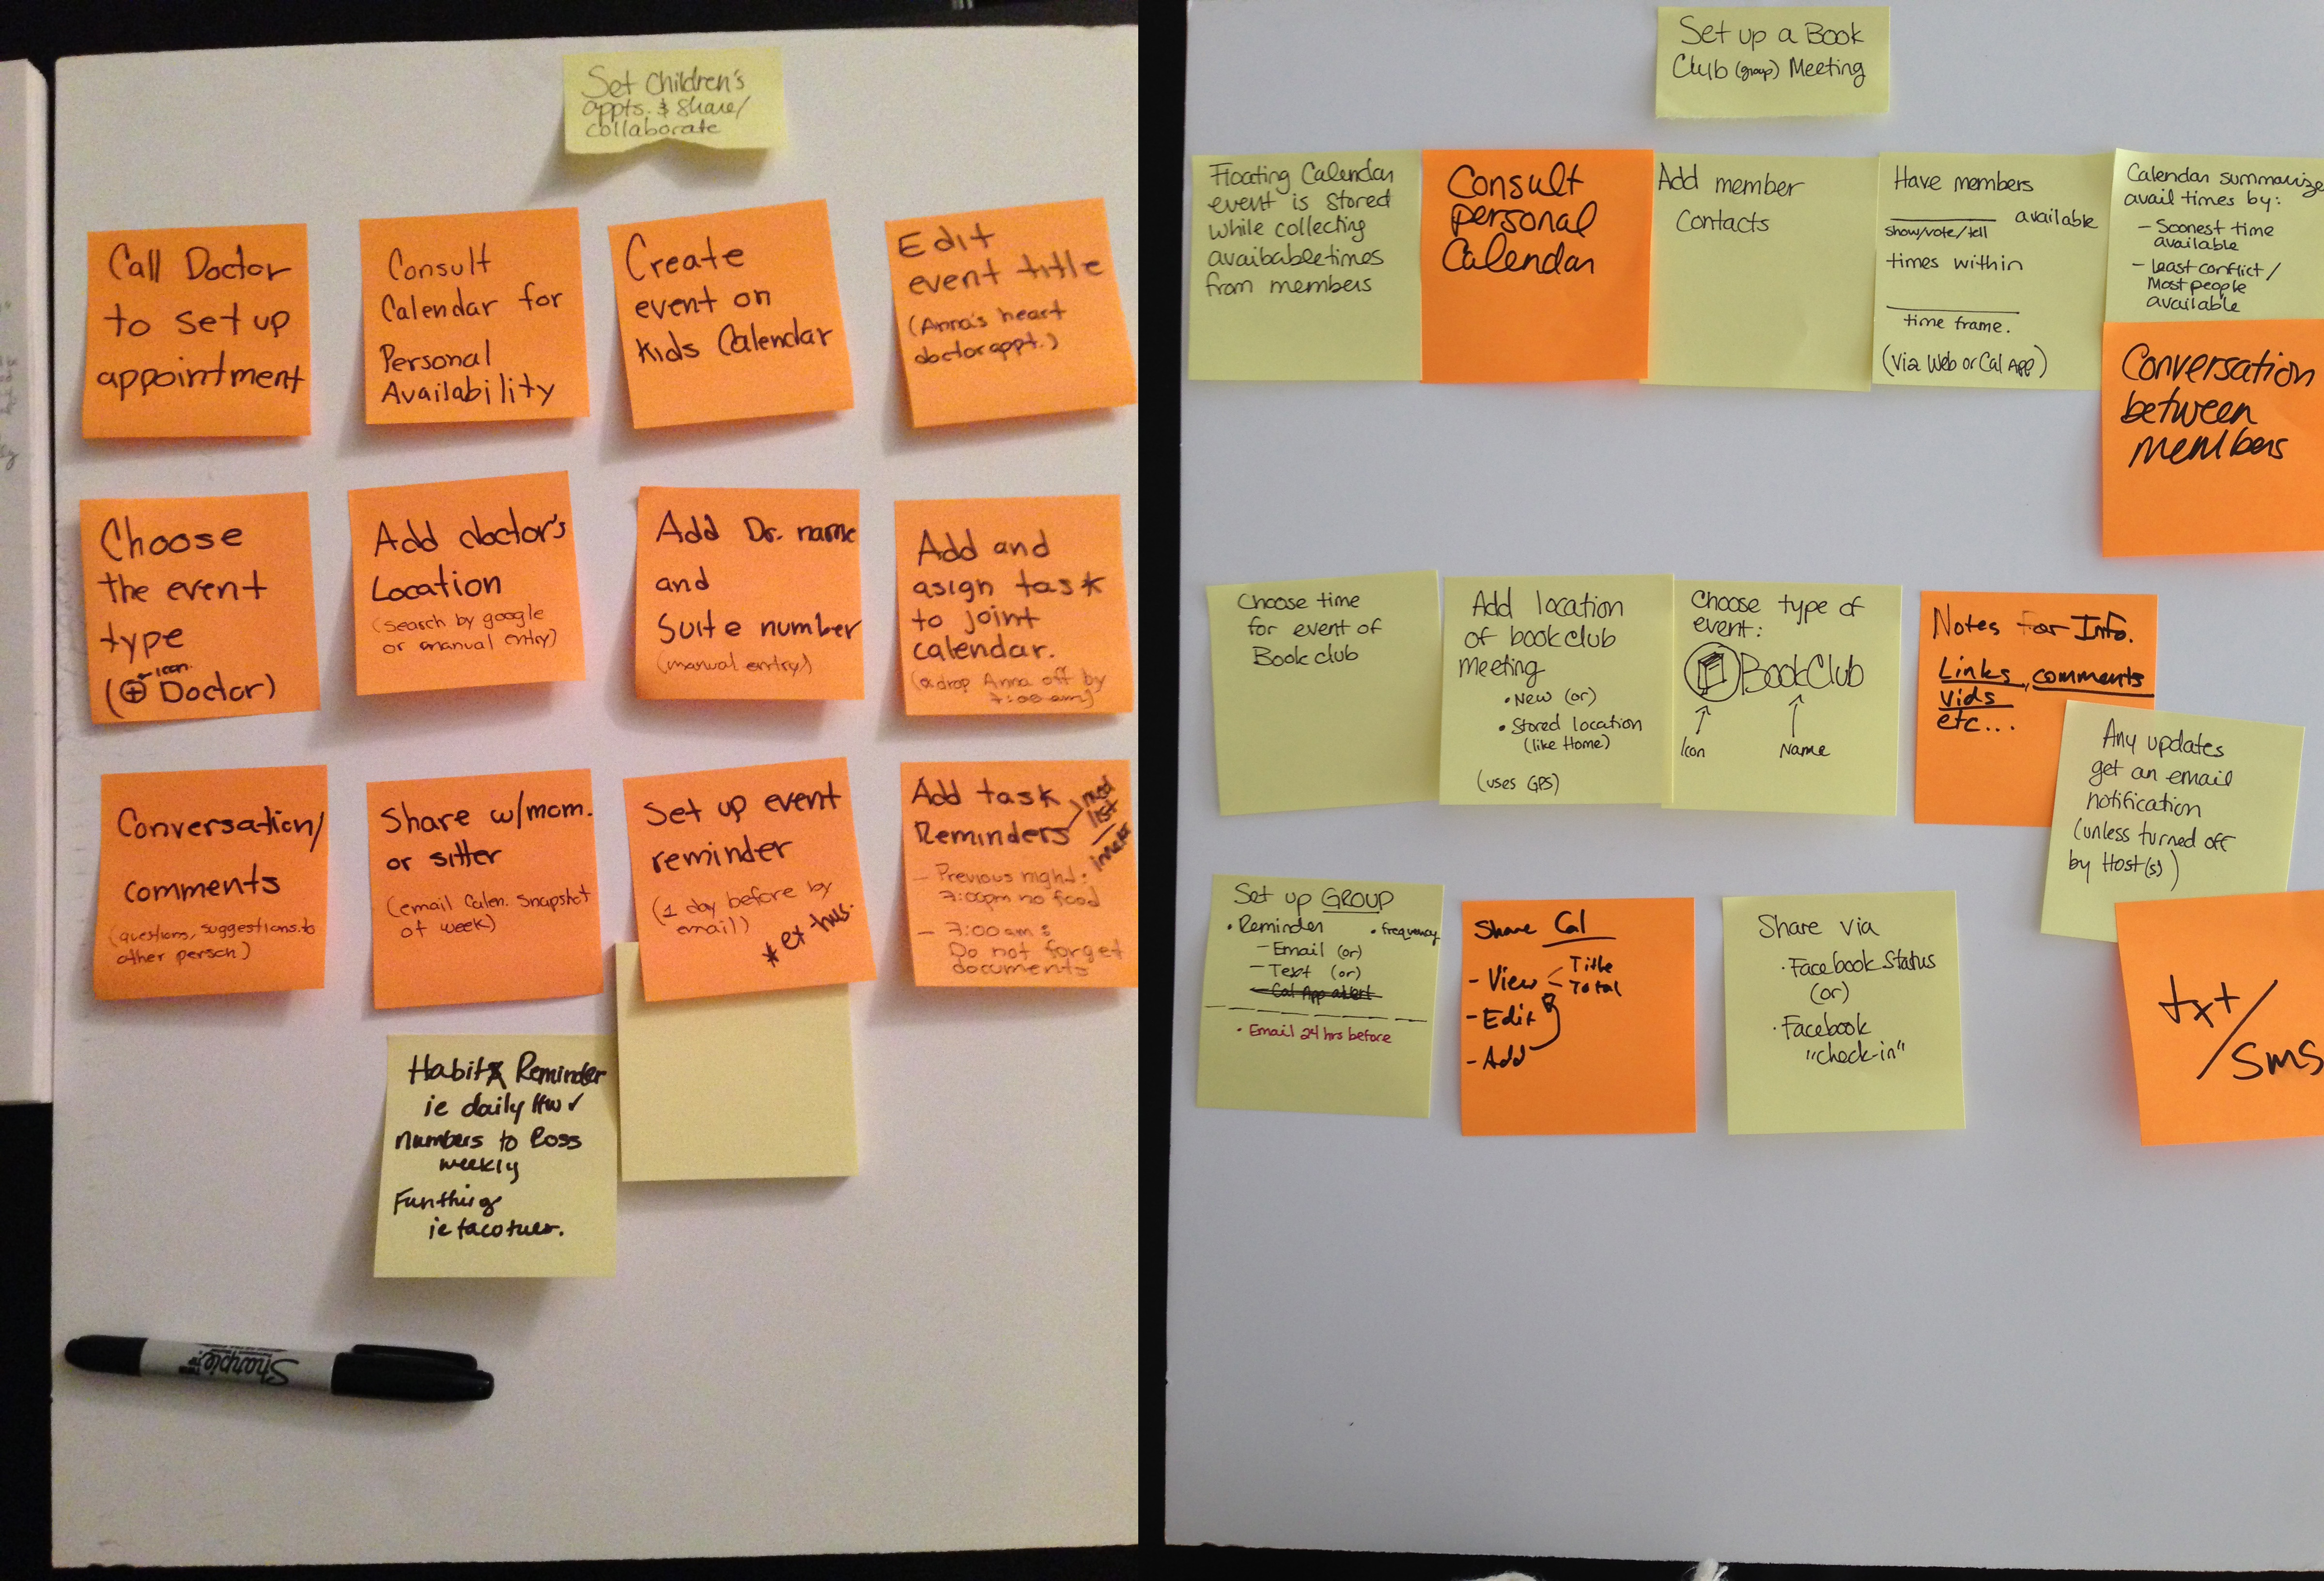 Set Children's
appts. & Share/
collaborate
Call Doctor
to set up
appointment
Consult
Calendar for
Personal
Availability
Create
event on
Kids Calendar
Edit
event title
(Anna's heart
doctor appt.)
Choose
the event
type
icon
(Doctor)
Add doctor's
Location
(search by google
or manual entry)
Add Dr. name
and
Suite number
(manual entry)
Add and
asign task
to joint
calendar.
drop Anna off by
7:00 am)
Conversation/
comments
(questions, suggestions to
other person)
Share w/mom.
or sitter
(email Calen. Snapshot
of week)
Set up event
reminder
(1 day before by
email)
Add task
Reminders
list
- Previous night:
7:00pm no food
- 7:00 am:
Do not forget
documents
Habit Reminder
ie daily HW ✓
numbers to Ross
weekly
Fun thing
ie taco tues.
Sharpie
Set up a Book
Club (group) Meeting
Floating Calendar
event is stored
while collecting
availabable times
from members
Consult
personal
Calendar
Add member
Contacts
Have members
available
show/vote/tell
times within
time frame.
(Via Web or Cal App)
Calendar summarize
avail times by:
- Soonest time
available
- Least conflict /
Most people
available
Conversation
between
members
Choose time
for event of
Book club
Add location
of book club
Meeting
• New (or)
• Stored location
(like Home)
(uses GPS)
Choose type of
event:
BookClub
Icon Name
Notes for Info.
Links, comments
vids
etc...
Any updates
get an email
notification
(unless turned off
by Host(s))
Set up GROUP
• Reminder • frequency
- Email (or)
- Text (or)
- Cal App alert
• Email 24 hrs before
Share Cal
- View - Title
- Total
- Edit
- Add
Share via
• Facebook Status
(or)
• Facebook
"check-in"
txt/
SMS